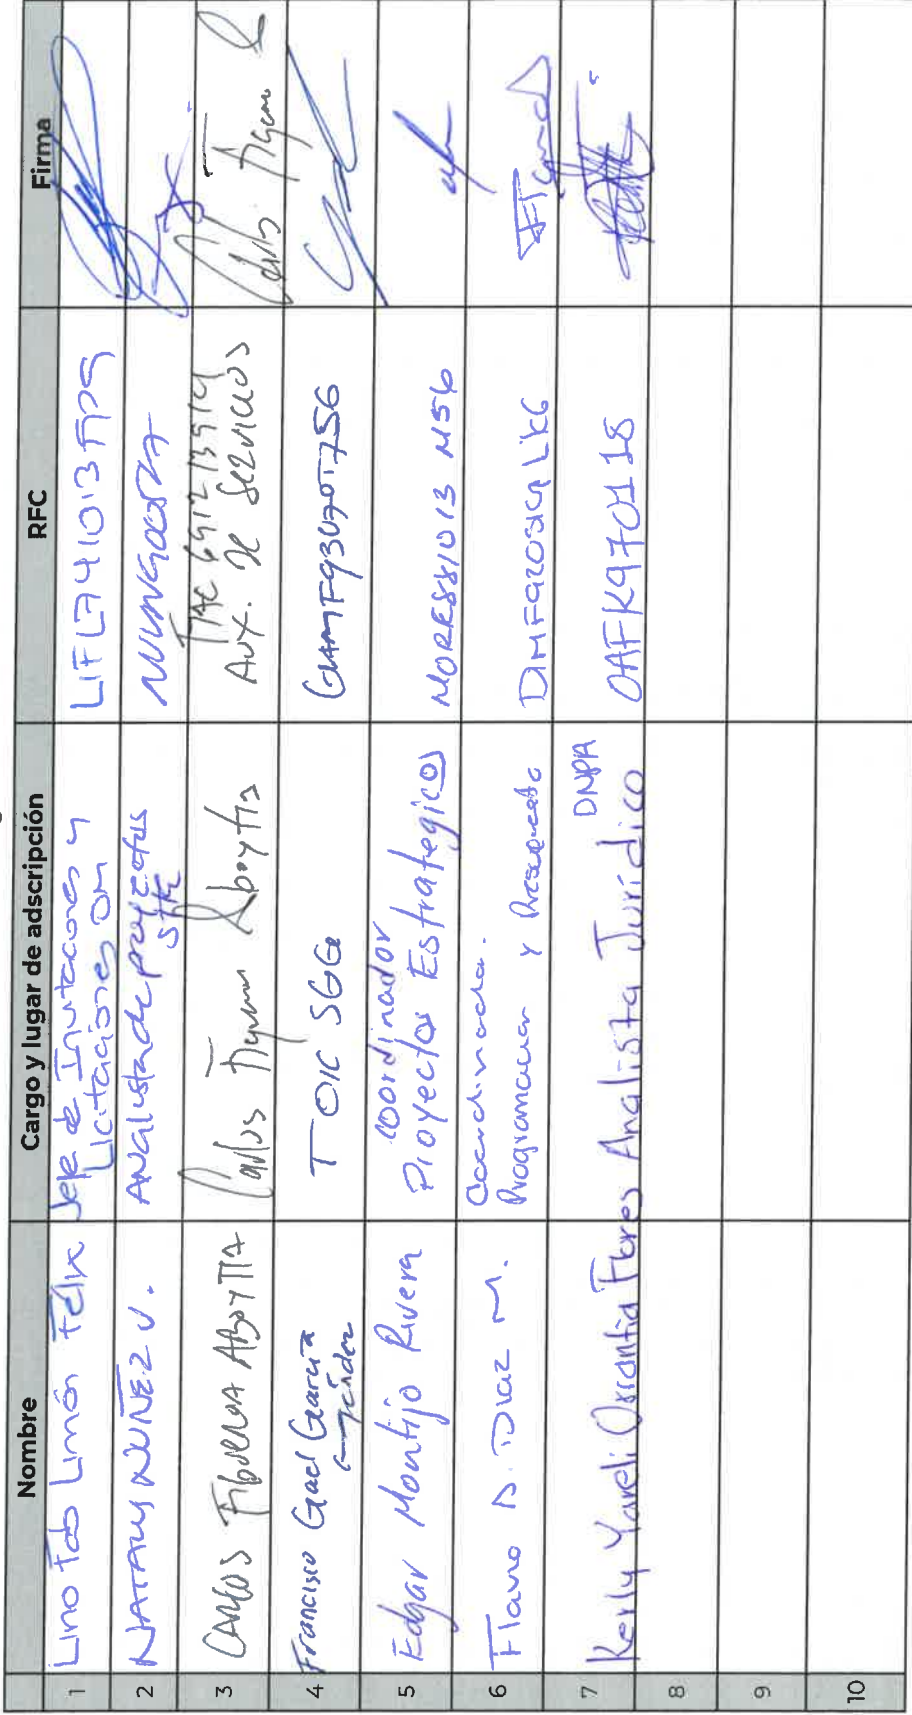 Nombre Cargo y lugar de adscripción RFC Firma
1 Lino Fab Limón Félix Jefe de Invitaciones y
Licitaciones OM LIFL741013
2 NATALY NUÑEZ V. Analista de proyectos
3 CARLOS FIGUEROA ABOYTIA Carlos Figueroa Aboytia
Aux. De Servicios Carlos
4 Francisco Gael García
Méndez TOIC SGG GAMF930701756
5 Edgar Montijo Rivera Coordinador
Proyectos Estrategicos MORE881013 M56
6 Flavio D. Diaz M. Coordinador.
Programacion y Presupuesto
7 Kerly Yareli Orrantia Flores Analista Jurídico DNPA OAFK970118
8
9
10